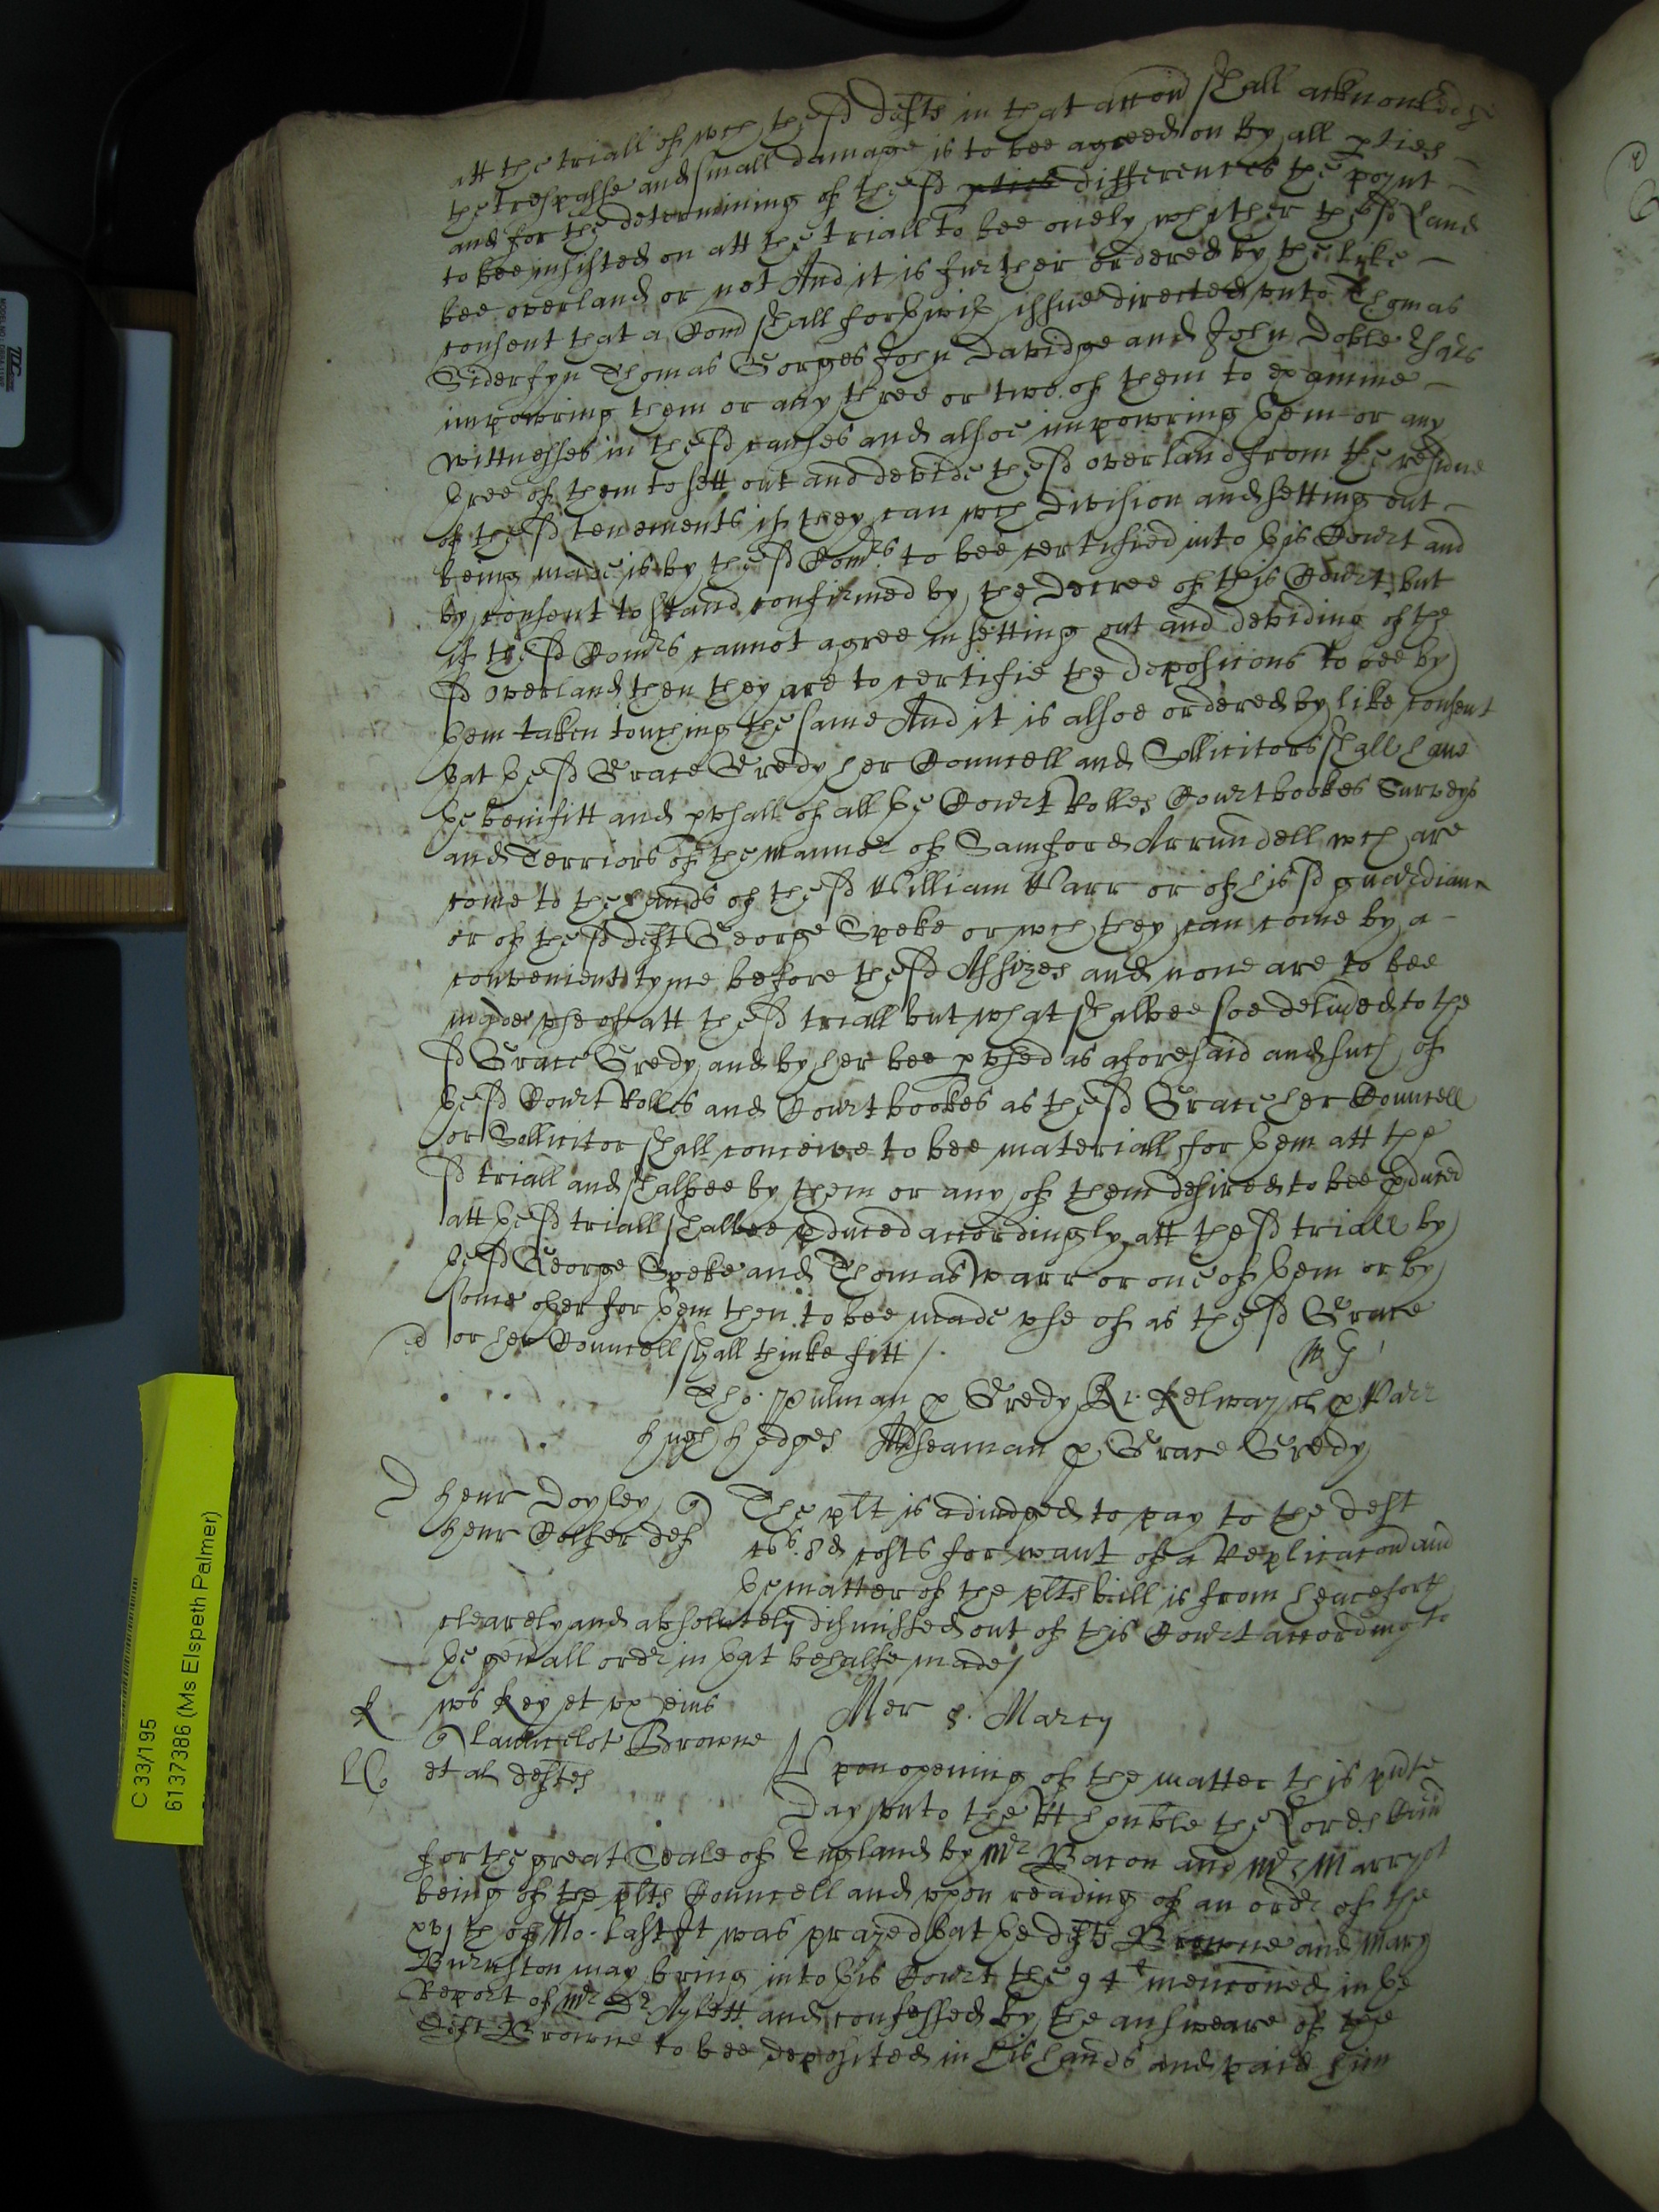 att the triall of wch the sd defts in that accon shall acknowledge
the trespasse and small damage is to bee agreed on by all pties
and for the determining of the sd pties differences the poynt
to bee insisted on att the triall to bee onely whither the sd Land
bee overland or not And it is further ordered by the like
consent that a Comd shall forthwith issue directed unto Thomas
Siderfyn Thomas Gorges John Davidge and John Doble
impowring them or any three or two of them to examine
wittnesses in the sd causes and alsoe impowring them or any
three of them to sett out and devide the sd overland from the residue
of the sd tenements if they can wch Division and setting out
being made is by the sd Comrs to bee certified into this Court and
by consent to stand confirmed by the Decree of this Court but
if the sd Comrs cannot agree in setting out and deviding of the
sd overland then they are to certifie the deposicons to bee by
them taken touching the same And it is alsoe ordered by like consent
that the sd Grace Gredy her Councell and Sollicitors shall have
the benifitt and pusall of all the Court Rolles Court bookes Surveys
and Terriors of the mannor of Samford Arrundell wch are
come to the hands of the sd William Warr or of his sd guardian
or of the sd deft George Speke or wch they can come by a
convenient tyme before the sd Assizes and none are to bee
made use of att the sd triall but what shalbee soe delived to the
sd Grace Gredy and by her bee pused as aforesaid and such of
the sd Court Rolles and Court bookes as the sd Grace her Councell
or Sollicitor shall conceive to bee materiall for them att the
sd triall and shalbee by them or any of them desired to bee pduced
att the sd triall shalbee pduced accordingly att the sd triall by
the sd George Speke and Thomas Warr or one of them or by
some other for them then to bee made use of as the sd Grace
or her Councell shall thinke fitt
Tho. Pulman p Gredy Ri. Kelway p Warr
Hugh Hodges Seaman p Grace Gredy
Henr Doyley
Henr Cother def
The plt is adiudged to pay to the deft
costs for want of a Replicacon and
the matter of the plts bill is from henceforth
clearely and absolutely dismissed out of this Court according to
the genall ordr in that behalfe made
R ws Key et ux eius
Launcelot Browne
et al defts
Mer 8. Marcy
Upon opening of the matter this psnte
Day unto the Rt honble the Lords Com
for the great Seale of England by Mr Bacon and Mr Marryot
being of the plts Councell and upon reading of an ordr of the
xvjth of No. last It was prayed that the defts Browne and Mary
Burnston may bring into this Court the 94l menconed in the
Report of Mr Dr Aylett and confessed by the answeare of the
deft Browne to bee deposited in his hands and paid him
C 33/195
6137386 (Ms Elspeth Palmer)